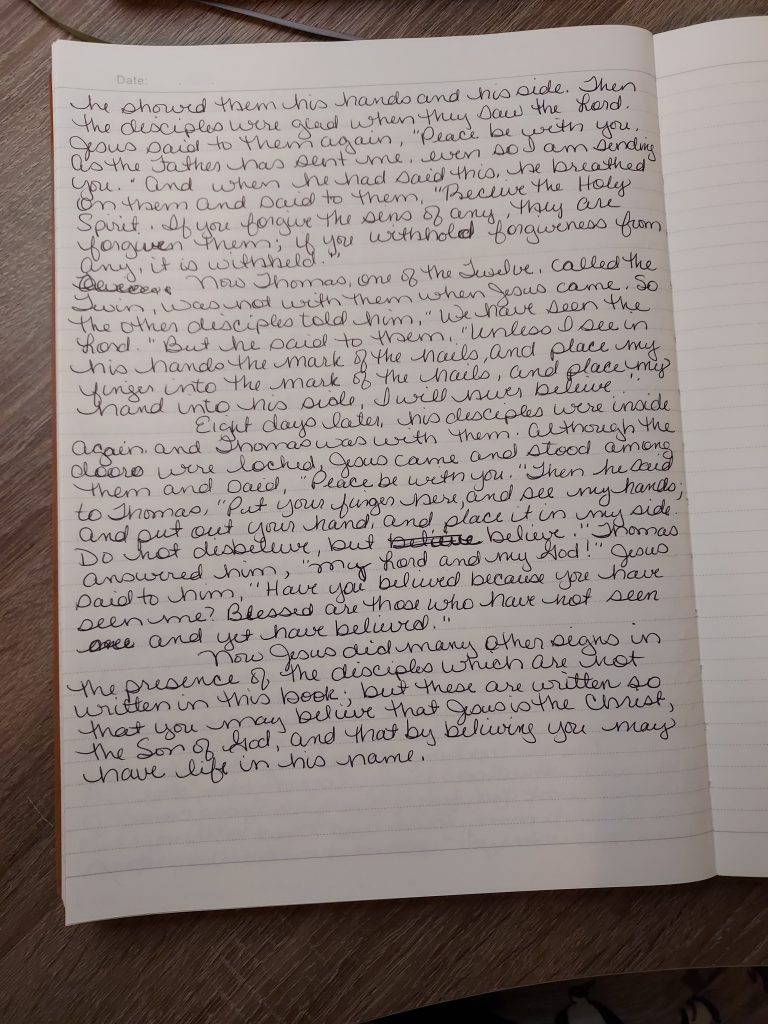 Date:
he showed them his hands and his side. Then
the disciples were glad when they saw the Lord.
Jesus said to them again, "Peace be with you.
As the Father has sent me, even so I am sending
you." And when he had said this, he breathed
on them and said to them, "Receive the Holy
Spirit. If you forgive the sins of any, they are
forgiven them; if you withhold forgiveness from
any, it is withheld."
Now Thomas, one of the Twelve, called the
Twin, was not with them when Jesus came. So
the other disciples told him, "We have seen the
Lord." But he said to them, "Unless I see in
his hands the mark of the nails, and place my
finger into the mark of the nails, and place my
hand into his side, I will never believe."
Eight days later, his disciples were inside
again and Thomas was with them. Although the
doors were locked, Jesus came and stood among
them and said, "Peace be with you." Then he said
to Thomas, "Put your finger here, and see my hands;
and put out your hand, and place it in my side.
Do not disbelieve, but believe believe." Thomas
answered him, "My Lord and my God!" Jesus
said to him, "Have you believed because you have
seen me? Blessed are those who have not seen
and yet have believed."
Now Jesus did many other signs in
the presence of the disciples which are not
written in this book; but these are written so
that you may believe that Jesus is the Christ,
the Son of God, and that by believing you may
have life in his name.